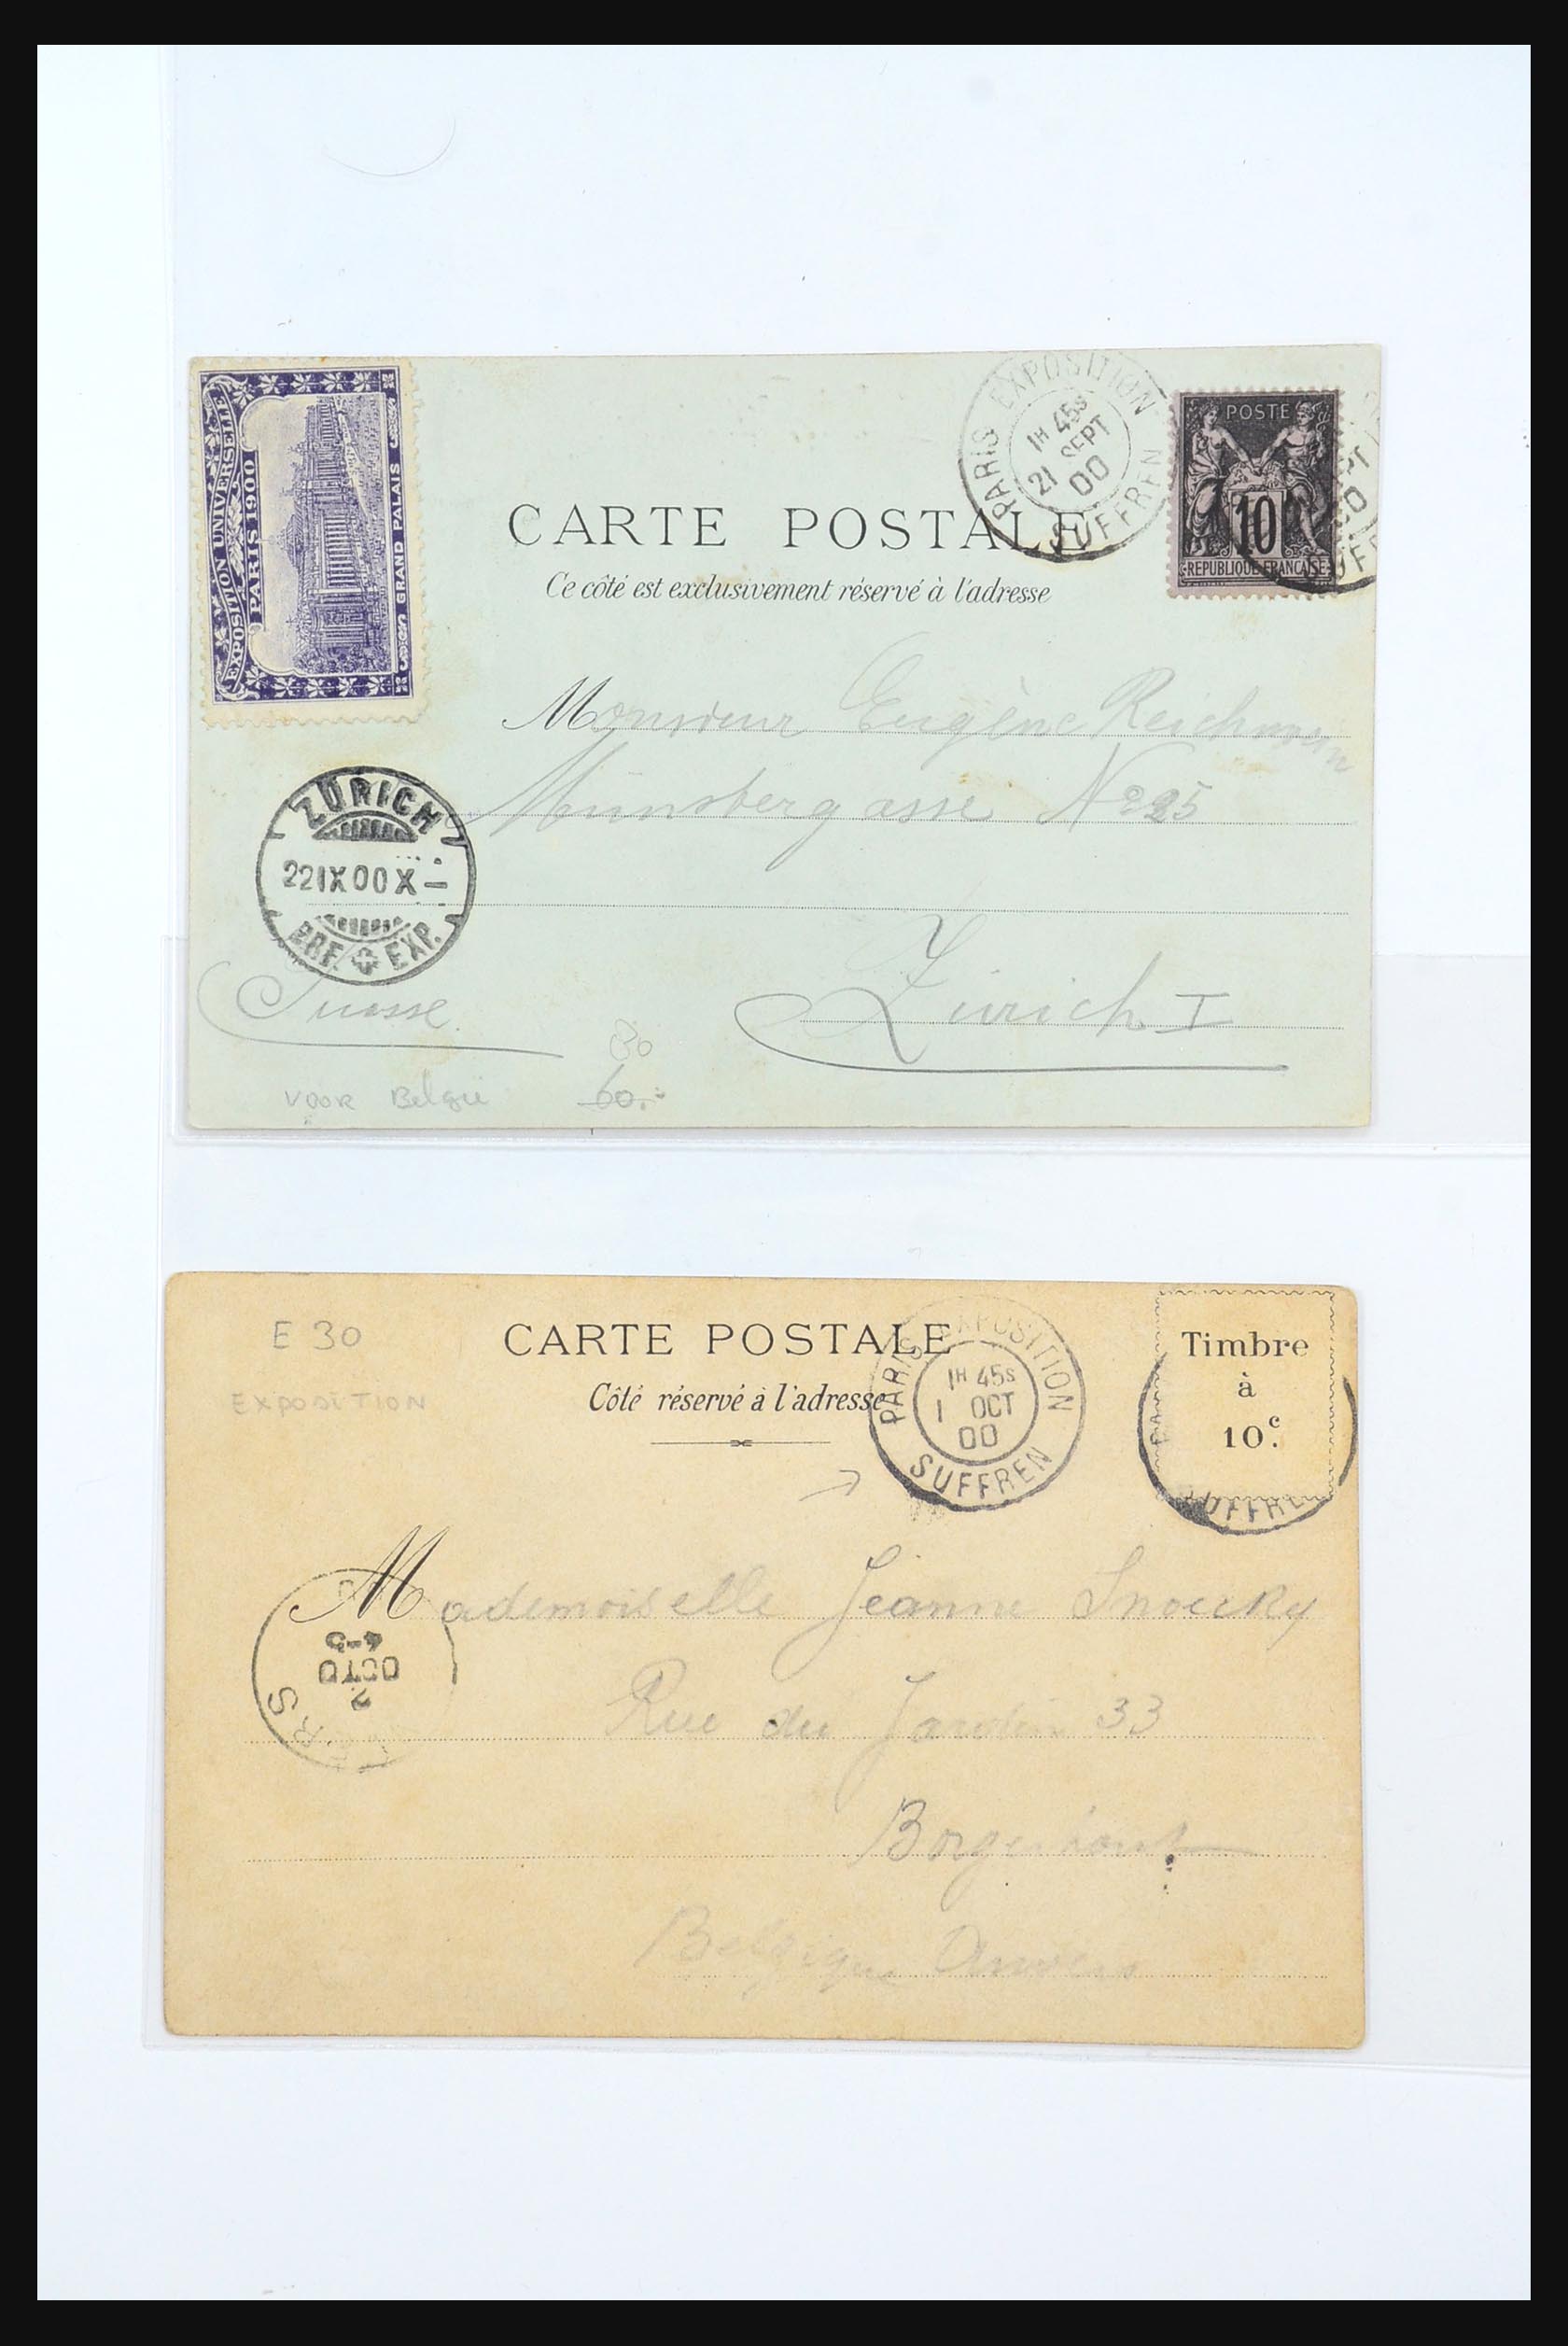 EXPOSITION UNIVERSELLE
PARIS 1900
GRAND PALAIS
PARIS EXPOSITION
1H 45S
21 SEPT
00
SUFFREN
POSTE
10
REPUBLIQUE FRANÇAISE
CARTE POSTALE
Ce côté est exclusivement réservé à l'adresse
Monsieur Eugène Reichmann
Münsbergasse No 25
ZÜRICH
22 IX 00 X –
BRF. EXP.
Suisse
Zürich I
30
60.-
VOOR België
E 30
EXPOSITION
CARTE POSTALE
Côté réservé à l'adresse
PARIS EXPOSITION
1H 45S
1 OCT
00
SUFFREN
Timbre
à
10c.
SUFFREN
Mademoiselle Jeanne Snoucky
4-5
OCTO
2
Rue du Jardin 33
Borgerhout
Belgique Anvers